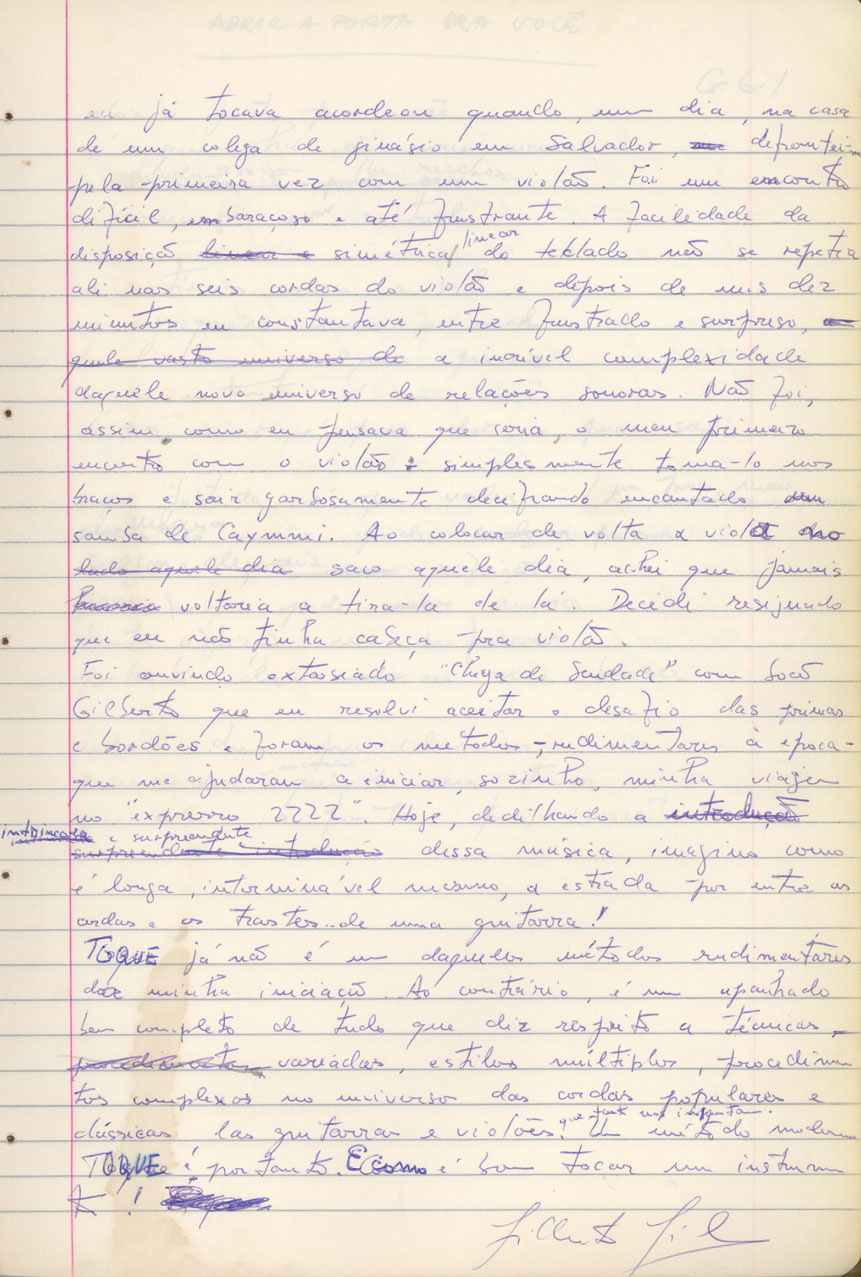 ABRIR A PORTA PRA VOCÊ
G.G.1
já tocava acordeon quando, um dia, na casa
de um colega de ginásio em Salvador, defrontei-m
pela primeira vez com um violão. Foi um encontro
difícil, embaraçoso e até frustrante. A facilidade da
linear
disposição linear e simétrica do teclado não se repetia
ali nas seis cordas do violão e depois de uns dez
minutos eu constantava, entre frustrado e surpreso,
quele vasto universo de a incrível complexidade
daquele novo universo de relações sonoras. Não foi,
assim como eu pensava que seria, o meu primeiro
encontro com o violão: simplesmente toma-lo nos
braços e sair garbosamente decifrando encantado um
samba de Caymmi. Ao colocar de volta a viola no
tudo aquele dia saco aquele dia, achei que jamais
voltaria a tira-la de lá. Decidi resignado
que eu não tinha cabeça pra violão.
Foi ouvindo extasiado "Chega de Saudade" com João
Gilberto que eu resolvi aceitar o desafio das primas
e bordões e foram os metodos - rudimentares à epoca -
que me ajudaram a iniciar, sozinho, minha viagem
no "expresso 2222". Hoje, dedilhando a introdução
intrincada e surpreendente
surpreendente introdução dessa música, imagino como
é longa, interminável mesmo, a estrada por entre as
cordas e os trastes.. de uma guitarra!
TOQUE já não é um daqueles métodos rudimentares
da minha iniciação. Ao contrário, é um apanhado
bem completo de tudo que diz respeito a técnicas
procedimentos variadas, estilos múltiplos, procedimen
tos complexos no universo das cordas populares e
que tanto nos importam.
clássicas las guitarras e violões. Um método moderno
TOQUE é portanto. E como é bom tocar um instrum
to!
Gilberto Gil